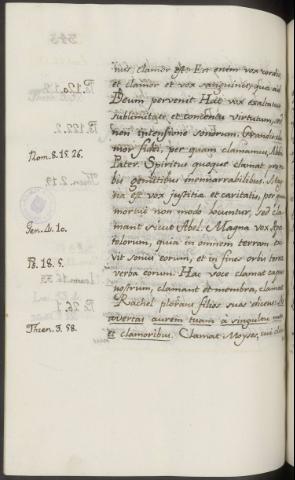 nus, clamor est. Est enim vox cordis,
et clamor et vox sanguinis, quæ ad
Ps. 120. 1. 2.
Deum pervenit. Hæc vox exaltatur
sublimitate et virtutum, sed
Ps. 122. 2.
non intensione sonorum. Grandis cla-
mor fidei, per quam clamamus, Abba
Rom. 8. 15. 26.
Pater. Spiritus quoque clamat pro no-
bis gemitibus inenarrabilibus. Mag-
na est vox justitia et caritatis, per quam
mortui non modo loquuntur, sed cla-
mant sicut Abel. Magna vox Apos-
Gen. 4. 10.
tolorum, quia in omnem terram exi-
vit sonus eorum, et in fines orbis terræ
Ps. 18. 5.
verba eorum. Hac voce clamat caput
nostrum, clamant et membra, clamat
Rachel plorans filios suos dicens: Ne
avertas aurem tuam à singultu meo
Thren. 3. 58.
et clamoribus. Clamat Moyses, cui